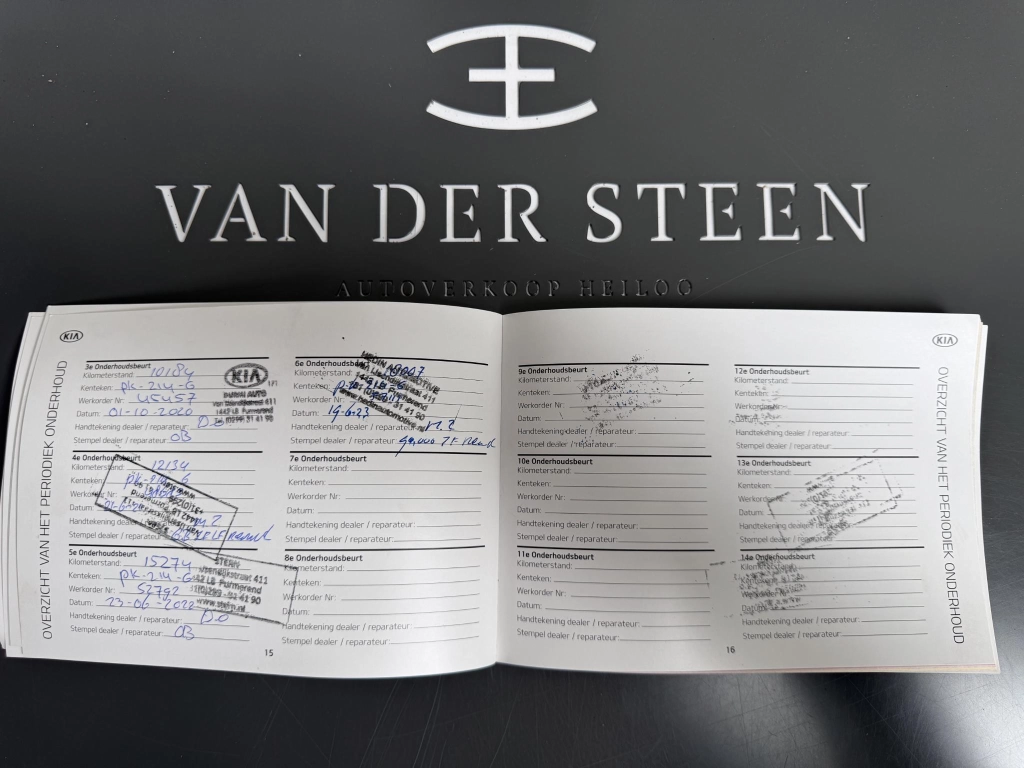 VAN DER STEEN
AUTOVERKOOP HEILOO
KIA
OVERZICHT VAN HET PERIODIEK ONDERHOUD
3e Onderhoudsbeurt
Kilometerstand: 10184
Kenteken: PK-214-G
Werkorder Nr: 45457
Datum: 01-10-2020
Handtekening dealer / reparateur:
Stempel dealer / reparateur: OB
KIA
AUTO
411
1442 LB Purmerend
31 41 90
4e Onderhoudsbeurt
Kilometerstand: 12134
Kenteken:
Werkorder Nr:
Datum:
Handtekening dealer / reparateur:
Stempel dealer / reparateur:
5e Onderhoudsbeurt
Kilometerstand: 15274
Kenteken: PK-214-G
Werkorder Nr: 52792
Datum: 23-06-2022
Handtekening dealer / reparateur:
Stempel dealer / reparateur: OB
STERN
411
1442 LB Purmerend
41 90
www.stern.nl
15
6e Onderhoudsbeurt
Kilometerstand:
Kenteken:
Werkorder Nr:
Datum: 19-6-23
Handtekening dealer / reparateur:
Stempel dealer / reparateur:
HEDIN AUTOMOTIVE
411
31 41 90
www.hedinautomotive.nl
7e Onderhoudsbeurt
Kilometerstand:
Kenteken:
Werkorder Nr:
Datum:
Handtekening dealer / reparateur:
Stempel dealer / reparateur:
8e Onderhoudsbeurt
Kilometerstand:
Kenteken:
Werkorder Nr:
Datum:
Handtekening dealer / reparateur:
Stempel dealer / reparateur:
9e Onderhoudsbeurt
Kilometerstand:
Kenteken:
Werkorder Nr:
Datum:
Handtekening dealer / reparateur:
Stempel dealer / reparateur:
10e Onderhoudsbeurt
Kilometerstand:
Kenteken:
Werkorder Nr:
Datum:
Handtekening dealer / reparateur:
Stempel dealer / reparateur:
11e Onderhoudsbeurt
Kilometerstand:
Kenteken:
Werkorder Nr:
Datum:
Handtekening dealer / reparateur:
Stempel dealer / reparateur:
16
12e Onderhoudsbeurt
Kilometerstand:
Kenteken:
Werkorder Nr:
Datum:
Handtekening dealer / reparateur:
Stempel dealer / reparateur:
13e Onderhoudsbeurt
Kilometerstand:
Kenteken:
Werkorder Nr:
Datum:
Handtekening dealer / reparateur:
Stempel dealer / reparateur:
14e Onderhoudsbeurt
Kilometerstand:
Kenteken:
Werkorder Nr:
Datum:
Handtekening dealer / reparateur:
Stempel dealer / reparateur:
KIA
OVERZICHT VAN HET PERIODIEK ONDERHOUD